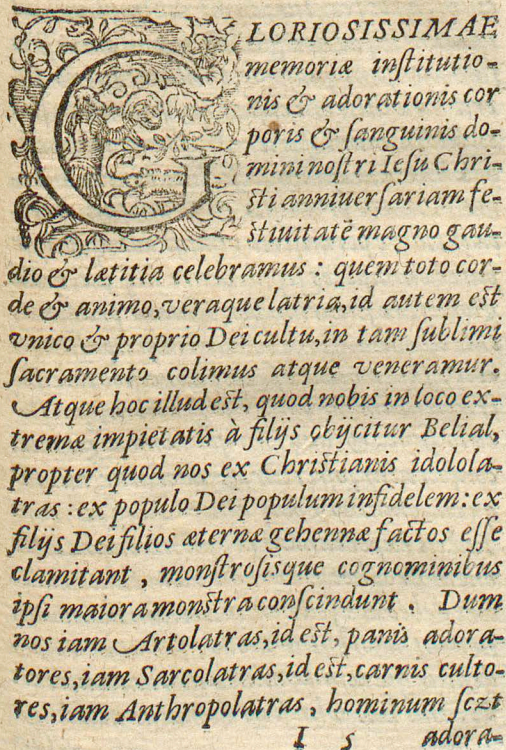 GLORIOSISSIMAE
memoriæ institutio-
nis & adorationis cor
poris & ſanguinis do-
mini noſtri Ieſu Chri-
ſti anniuerſariam fe-
ſtiuitatē magno gau-
dio & lætitia celebramus : quem toto cor-
de & animo, veraque latria, id autem eſt
vnico & proprio Dei cultu, in tam ſublimi
ſacramento colimus atque veneramur.
Atque hoc illud eſt, quod nobis in loco ex-
tremæ impietatis à filijs obijcitur Belial,
propter quod nos ex Chriſtianis idolola-
tras : ex populo Dei populum infidelem : ex
filijs Dei filios æternæ gehennæ factos eſſe
clamitant, monſtroſisque cognominibus
ipſi maiora monſtra conſcindunt. Dum
nos iam Artolatras, id eſt, panis adora-
tores, iam Sarcolatras, id eſt, carnis culto-
res, iam Anthropolatras, hominum ſczt
I 5 adora-